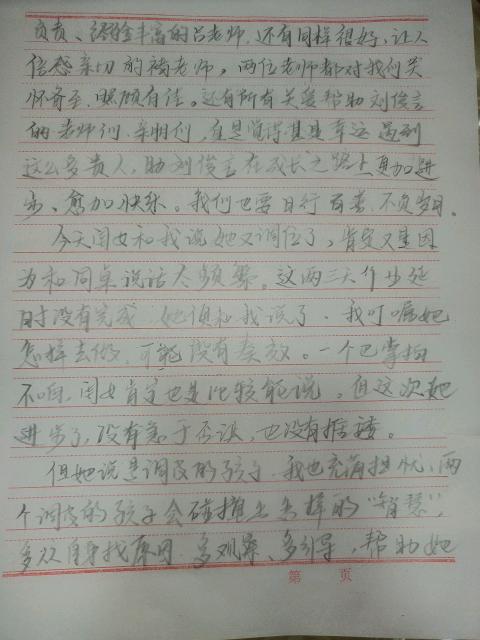 负责、经验丰富的吕老师,还有同样很好、让人
倍感亲切的褚老师,两位老师都对我们关
怀备至、照顾有佳。还有所有关爱帮助刘俊言
的老师们、亲朋们,自是觉得甚是幸运遇到
这么多贵人,助刘俊言在成长之路上更加进
步、愈加快乐。我们也要日行百善、不负岁月。
今天闺女和我说她又调位了,肯定又是因
为和同桌说话太频繁。这两三天作业延
时没有完成 她俱和我说了,我叮嘱她
怎样去做,可能没有奏效。一个巴掌拍
不响,闺女肯定也是比较能说。但这次她
进步了,没有急于否认,也没有
但她说是调皮的孩子,我也充满担忧,两
个调皮的孩子会碰撞出怎样的“智慧”,
多从自身找原因、多观察、多引导,帮助她
第 页